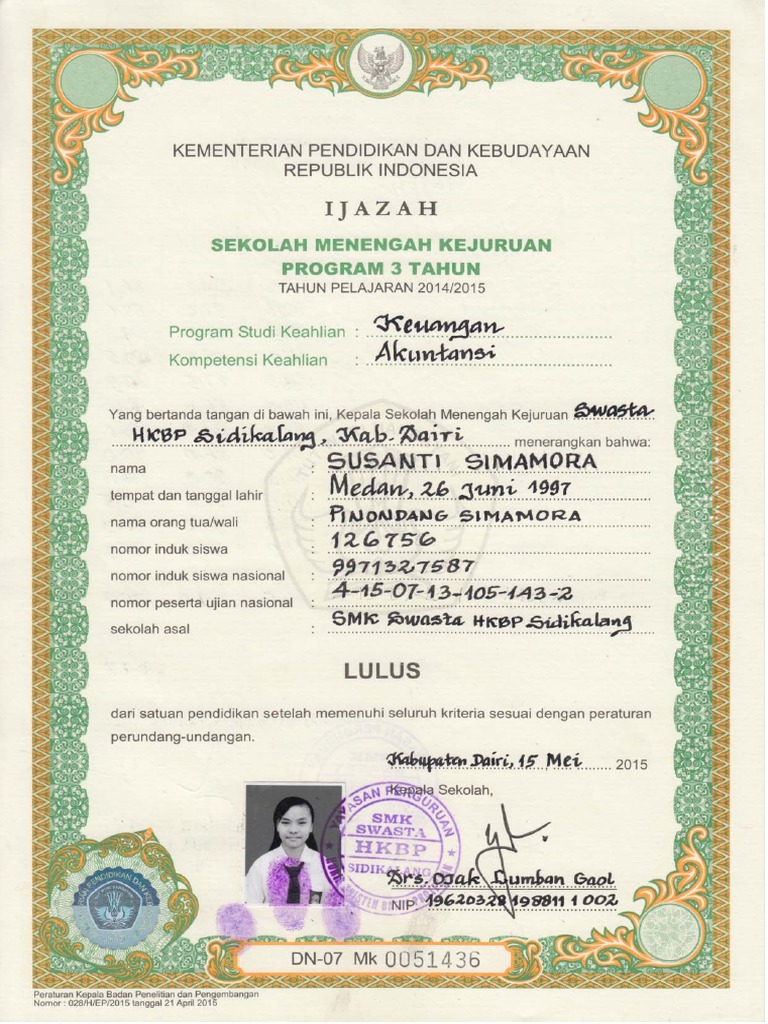 KEMENTERIAN PENDIDIKAN DAN KEBUDAYAAN
REPUBLIK INDONESIA
IJAZAH
SEKOLAH MENENGAH KEJURUAN
PROGRAM 3 TAHUN
TAHUN PELAJARAN 2014/2015
Program Studi Keahlian : Keuangan
Kompetensi Keahlian : Akuntansi
Yang bertanda tangan di bawah ini, Kepala Sekolah Menengah Kejuruan Swasta
HKBP Sidikalang, Kab. Dairi menerangkan bahwa:
nama : SUSANTI SIMAMORA
tempat dan tanggal lahir : Medan, 26 Juni 1997
nama orang tua/wali : PINONDANG SIMAMORA
nomor induk siswa : 126756
nomor induk siswa nasional : 9971327587
nomor peserta ujian nasional : 4-15-07-13-105-143-2
sekolah asal : SMK Swasta HKBP Sidikalang
LULUS
dari satuan pendidikan setelah memenuhi seluruh kriteria sesuai dengan peraturan
perundang-undangan.
Kabupaten Dairi, 15 Mei 2015
Kepala Sekolah,
YAYASAN PERGURUAN
SMK
SWASTA
HKBP
SIDIKALANG
Drs. Ojak Lumban Gaol
NIP. 19620328 198811 1 002
DN-07 Mk 0051436
Peraturan Kepala Badan Penelitian dan Pengembangan
Nomor : 028/H/EP/2015 tanggal 21 April 2015